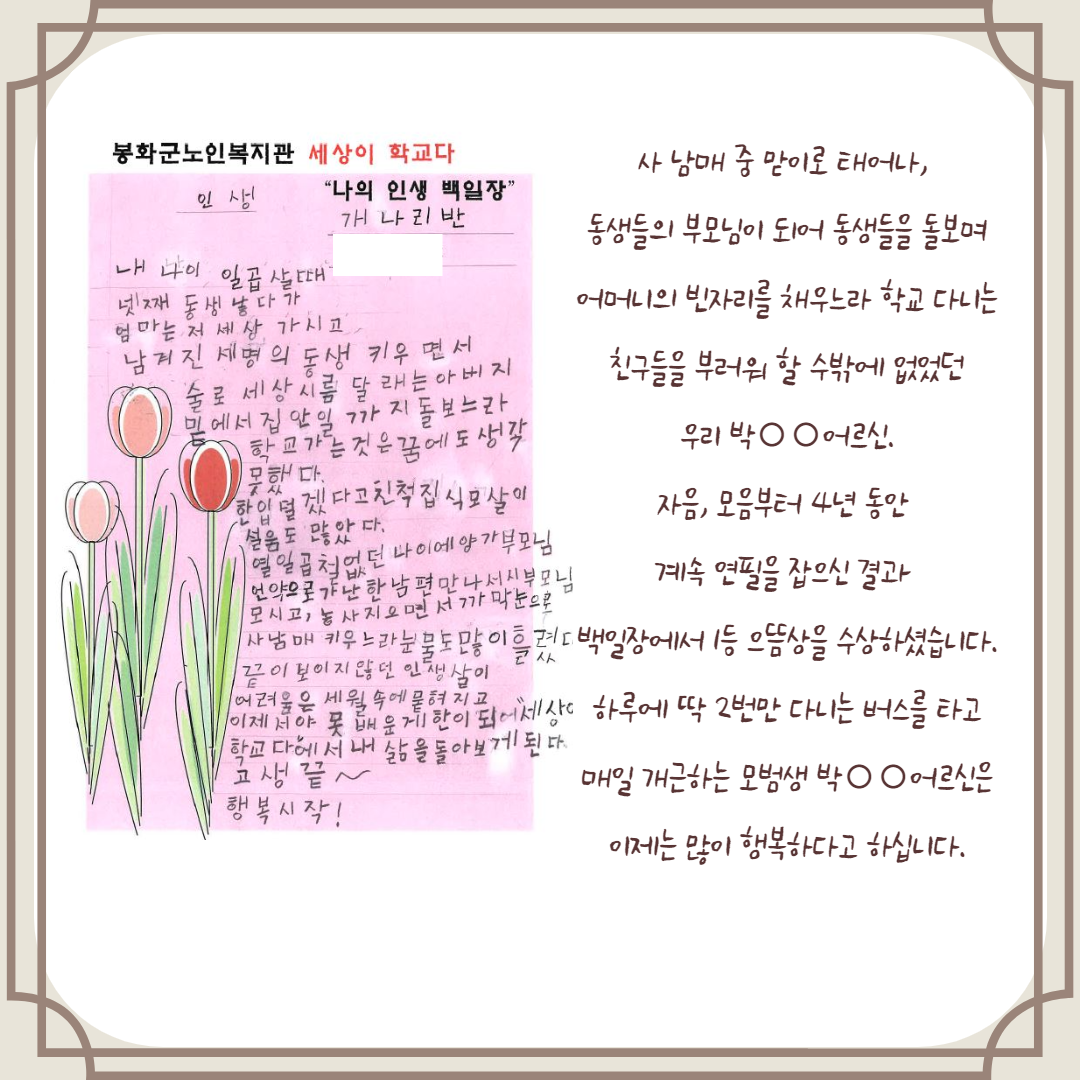 봉화군노인복지관 세상이 학교다
인 생
“나의 인생 백일장”
개나리반
내 나이 일곱살때
넷째 동생낳다가
엄마는 저세상 가시고
남겨진 세명의 동생 키우면서
술로 세상시름 달래는아버지
밑에서 집안일 ㄱ가지돌보느라
학교가는것은꿈에도생각
못했다.
한입덜겠다고친척집식모살이
설움도 많았다.
열일곱철없던 나이에양가부모님
언약으로가난한남편만나서시부모님
모시고, 농사지으면서 ㄱ가막눈으로
사남매 키우느라눈물도많이흘렸다
끝이보이지않던 인생살이
어려움은 세월속에묻혀지고
이제서야 못배운게한이되어"세상이
학교다"에서내 삶을돌아보게된다.
고생끝~
행복시작!
사 남매 중 맏이로 태어나,
동생들의 부모님이 되어 동생들을 돌보며
어머니의 빈자리를 채우느라 학교 다니는
친구들을 부러워 할 수밖에 없었던
우리 박○○어르신.
자음, 모음부터 4년 동안
계속 연필을 잡으신 결과
백일장에서 1등 으뜸상을 수상하셨습니다.
하루에 딱 2번만 다니는 버스를 타고
매일 개근하는 모범생 박○○어르신은
이제는 많이 행복하다고 하십니다.